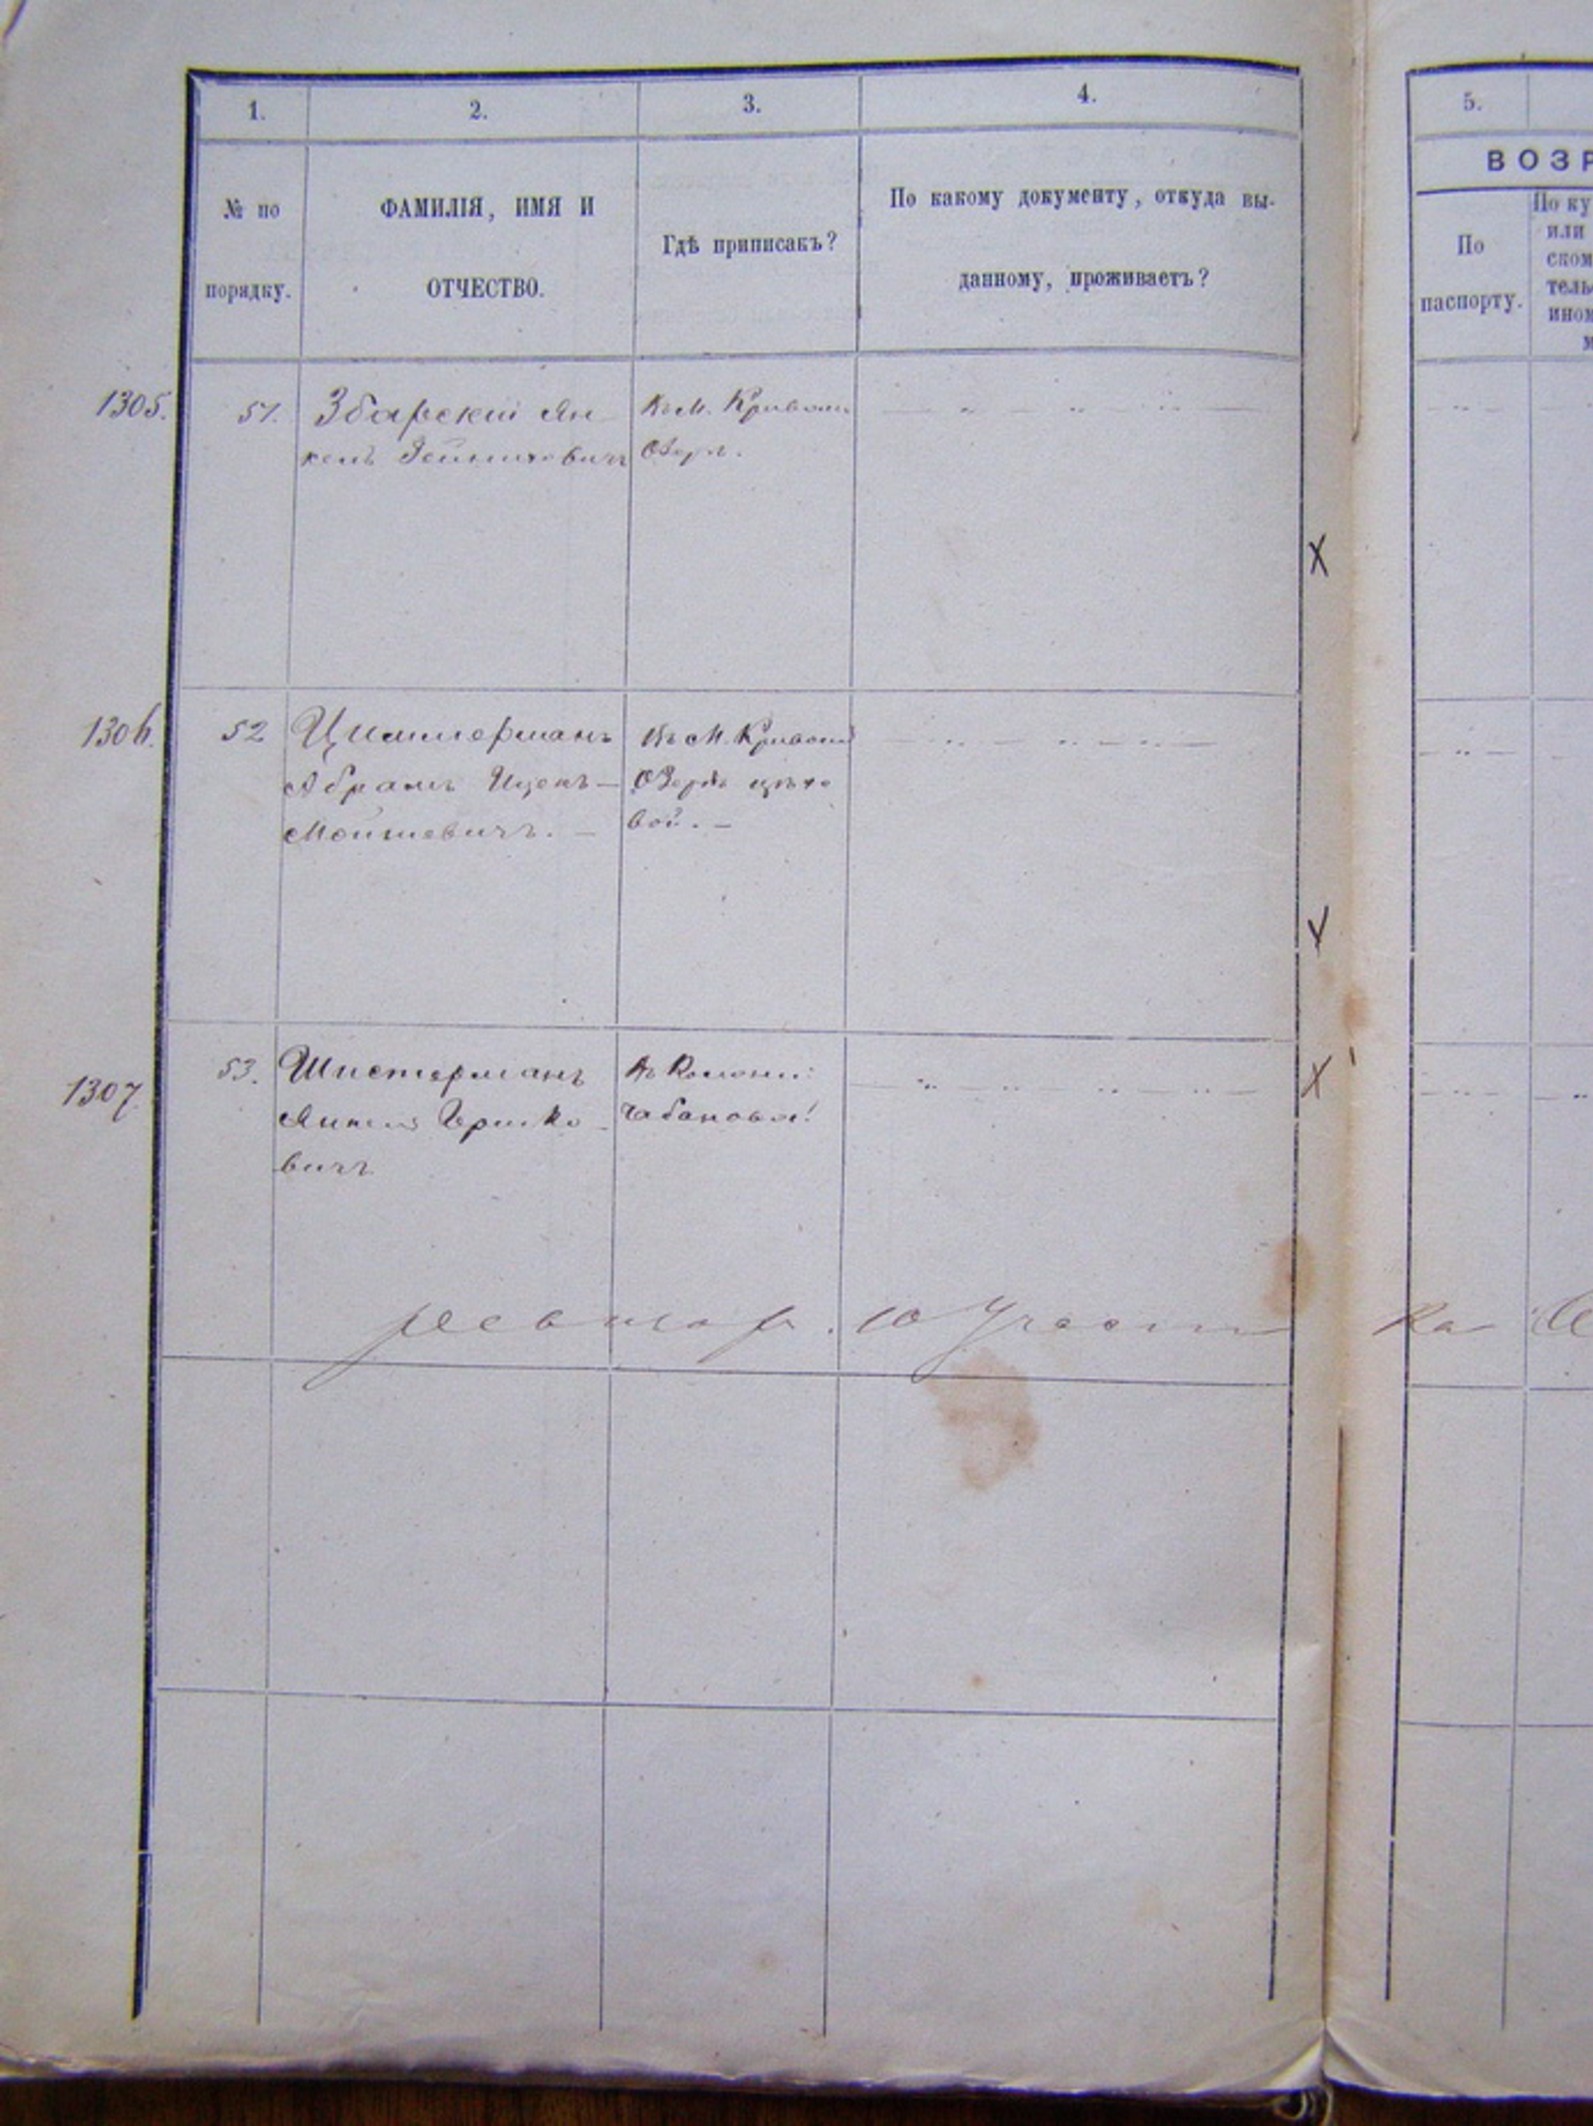 1.
2.
3.
4.
5.
№ по
порядку.
ФАМИЛІЯ, ИМЯ И
ОТЧЕСТВО.
Гдѣ приписанъ?
По какому документу, откуда вы-
данному, проживаетъ?
ВОЗР
По
паспорту.
По ку
или
ском
тель
ином
м
1305.
51.
Збарскій Ян-
кель
Въ М. Кривомъ
Озерѣ.
1306.
52
Цимерманъ
Абрамъ Ицекъ-
Мошкевичъ.
Въ М. Кривомъ
Озерѣ цехо
вой.
1307.
53.
Шистерманъ
Янкель Гершко-
вичъ
Въ Колоніи:
Чабановка
Ка